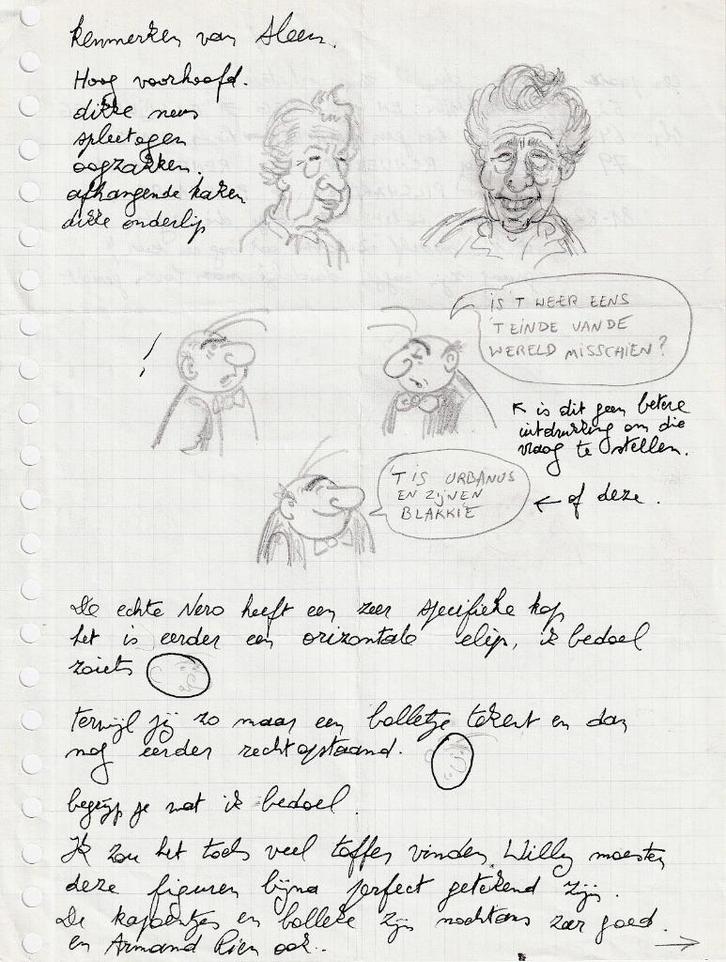 Kenmerken van Sleen.
Hoog voorhoofd.
dikke neus
spleetogen
oogzakken.
afhangende kaken
dikke onderlip
!
IS 'T WEER EENS
'T EINDE VAN DE
WERELD MISSCHIEN?
is dit geen betere
uitdrukking om die
vraag te stellen.
'T IS URBANUS
EN ZIJNEN
BLAKKIE
← of deze.
De echte Nero heeft een zeer specifieke kop
het is eerder een orizontale elips, ik bedoel
zoiets
terwijl jij zo maar een balletje tekent en dan
nog eerder rechtopstaand.
begrijp je wat ik bedoel.
Ik zou het toch veel toffer vinden, Willy moesten
deze figuren bijna perfect getekend zijn.
De kapoentjes en bolleke zijn nochtans zeer goed.
en Armand Pien ook..
→